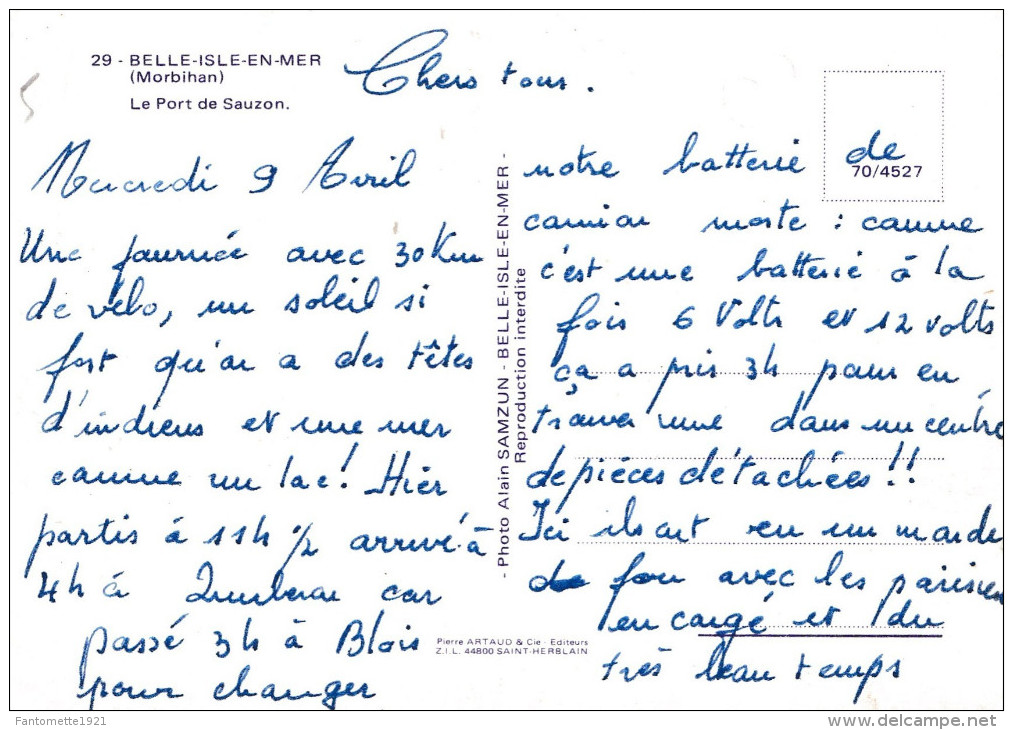 29 - BELLE-ISLE-EN-MER
(Morbihan)
Le Port de Sauzon.
Chers tous.
Mercredi 9 Avril
Une journée avec 30 Km
de vélo, un soleil si
fort qu'on a des têtes
d'indiens et une mer
comme un lac! Hier
partis à 11h 1/2 arrivé à
4h à Quiberon car
passé 3h à Blois
pour changer
- Photo Alain SAMZUN - BELLE-ISLE-EN-MER -
Reproduction interdite
Pierre ARTAUD & Cie - Editeurs
Z.I.L. 44800 SAINT-HERBLAIN
70/4527
notre batterie de
camion morte : comme
c'est une batterie à la
fois 6 Volts et 12 volts
ça a pris 3h pour en
trouver une dans un centre
de pièces détachées !!
Ici ils ont eu un monde
fou avec les parisiens
en congé et du
très beau temps
Fantomette1921
delcampe.net